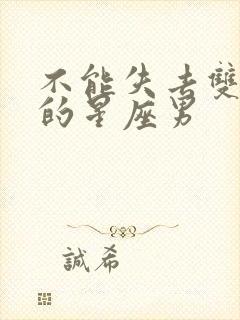 不能失去雙
的星座男
誠希